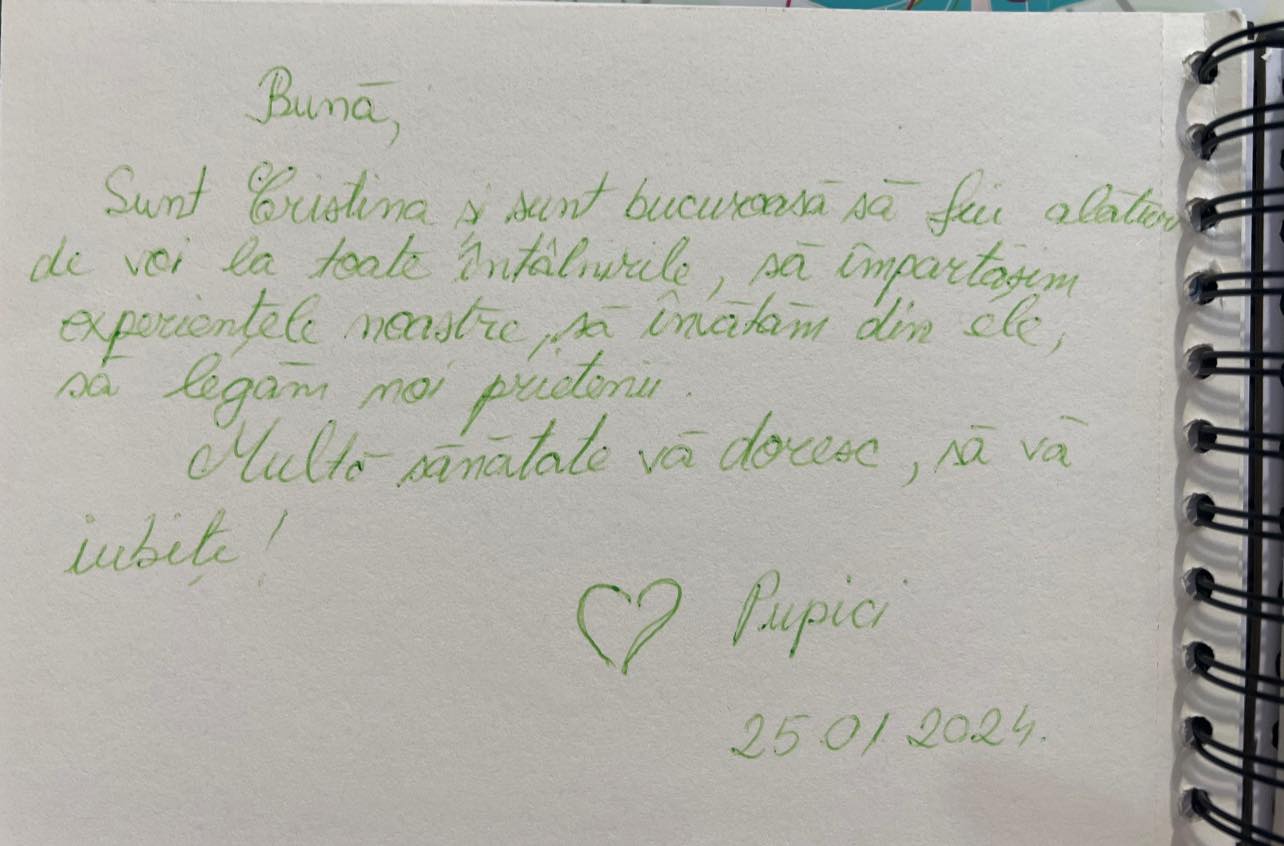 Bună,
Sunt Cristina și sunt bucuroasă să fiu alături
de voi la toate întâlnirile, să împartășim
experiențele noastre, să învătăm din ele,
să legăm noi prietenii.
Multă sănătate vă doresc, să vă
iubiți!
♡ Pupici
25.01.2024.